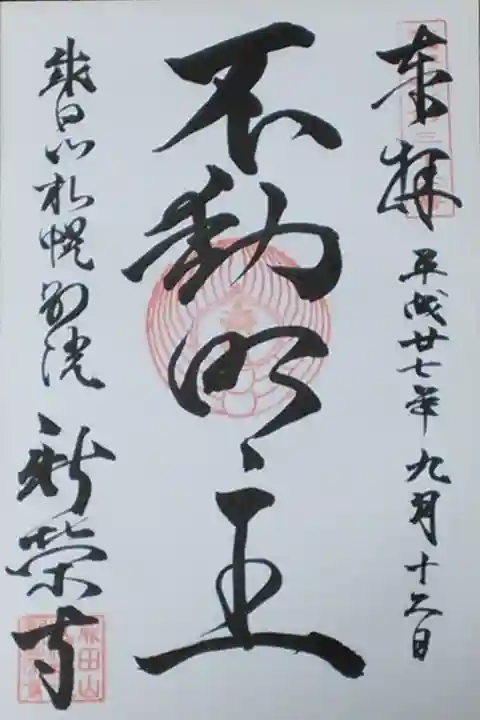 奉拝 平成廿七年九月十六日
不動明王
成田山札幌別院 新栄寺
成田山